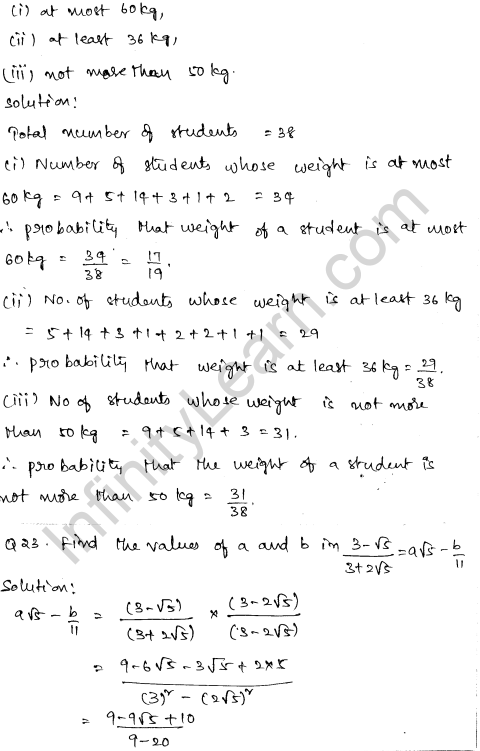 (i) at most 60kg,
(ii) at least 36 kg,
(iii) not more than 50 kg.
Solution:
Total number of students = 38
(i) Number of students whose weight is at most
60 kg = 9+ 5+ 14+ 3+1+ 2 = 34
∴ probability that weight of a student is at most
60 kg = 34/38 = 17/19.
(ii) No. of students whose weight is at least 36 kg
= 5+14+3+1+2+2+1+1 = 29
∴ probability that weight is at least 36 kg = 29/38.
(iii) No of students whose weight is not more
than 50 kg = 9+5+14+ 3 = 31.
∴ probability that the weight of a student is
not more than 50 kg = 31/38.
Q23. Find the values of a and b in (3-√5)/(3+2√5) = a√5 - b/11
Solution:
a√5 - b/11 = (3-√5)/(3+2√5) × (3-2√5)/(3-2√5)
= (9-6√5-3√5+2×5)/((3)² - (2√5)²)
= (9-9√5+10)/(9-20)
InfinityLearn.com